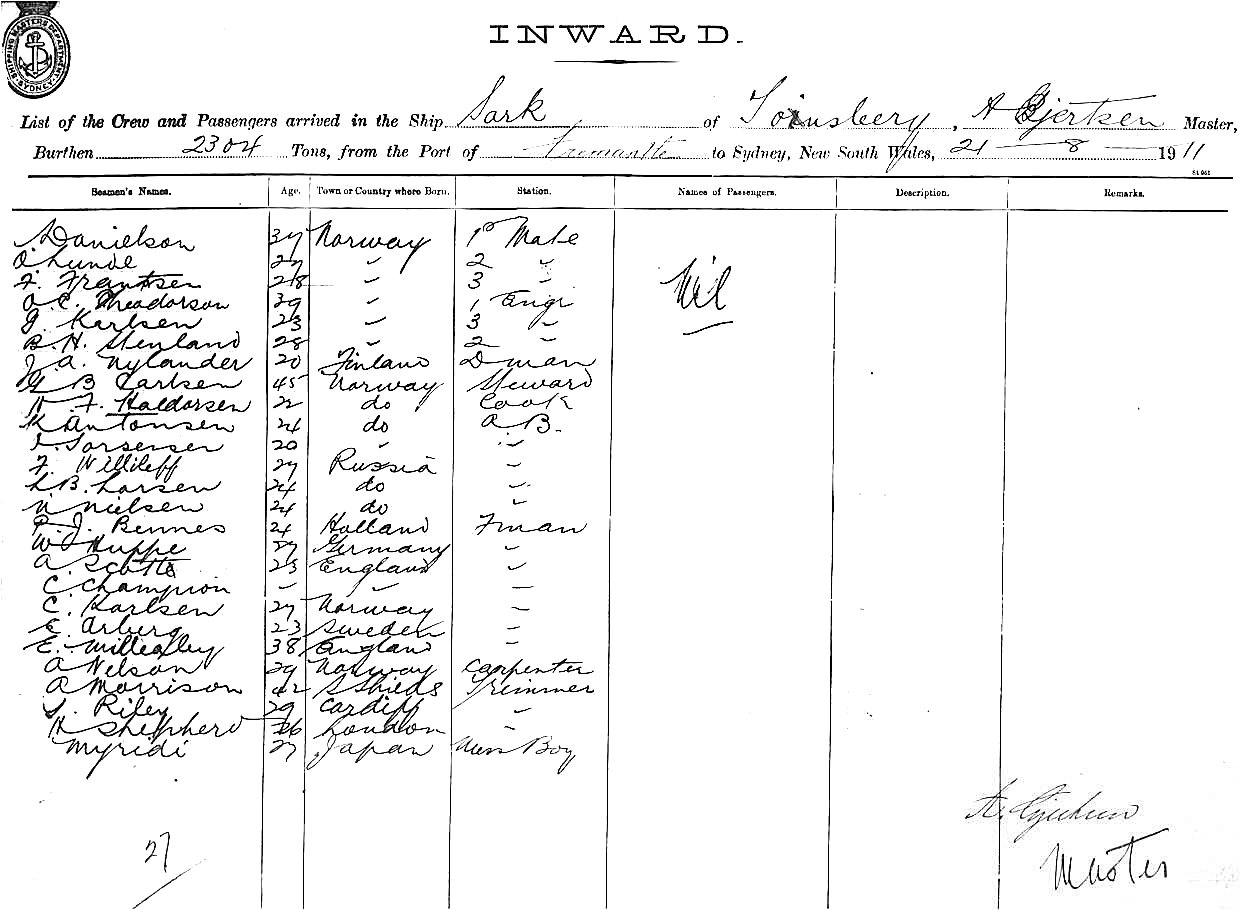 SHIPPING MASTERS DEPARTMENT SYDNEY
INWARD.
List of the Crew and Passengers arrived in the Ship Sark of Toinsbery, A Gjertsen Master,
Burthen 2304 Tons, from the Port of Fremantle to Sydney, New South Wales, 21 — 8 — 1911
Seamen's Names. Age. Town or Country where Born. Station. Names of Passengers. Description. Remarks.
Danielson 37 Norway 1st Mate
O. Lunde 27 " 2 "
F. Frantsen 28 " 3 "
O. C. Theadorson 39 " 1 Engr Nil
J. Karlsen 23 " 3 "
B. H. Stenland 28 " 2 "
J. A. Nylander 20 Finland Dman
B Carlsen 45 Norway Steward
H. F. Haldorsen 22 do Cook
K Antonsen 24 do A.B.
Sorsensen 20 " "
F. Willileff 27 Russia "
L. B. Larsen 24 do "
N. Nielsen 24 do "
P. J. Bennes 24 Holland Fman
W Huppe 27 Germany "
A Scotts 23 England "
C. Champion – " "
C. Karlsen 27 Norway "
E. Arberg 23 Sweden "
E. 38 England "
A Nelson 29 Norway Carpenter
A Morrison 42 S Shields Trimmer
Riley 29 Cardiff "
H Shepherd 26 London "
Myridi 27 Japan Mess Boy
A. Gjertsen
Master
27